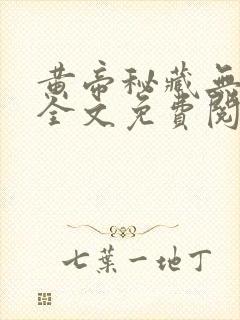 黄帝秘藏无
全文免費閱
七葉一地丁